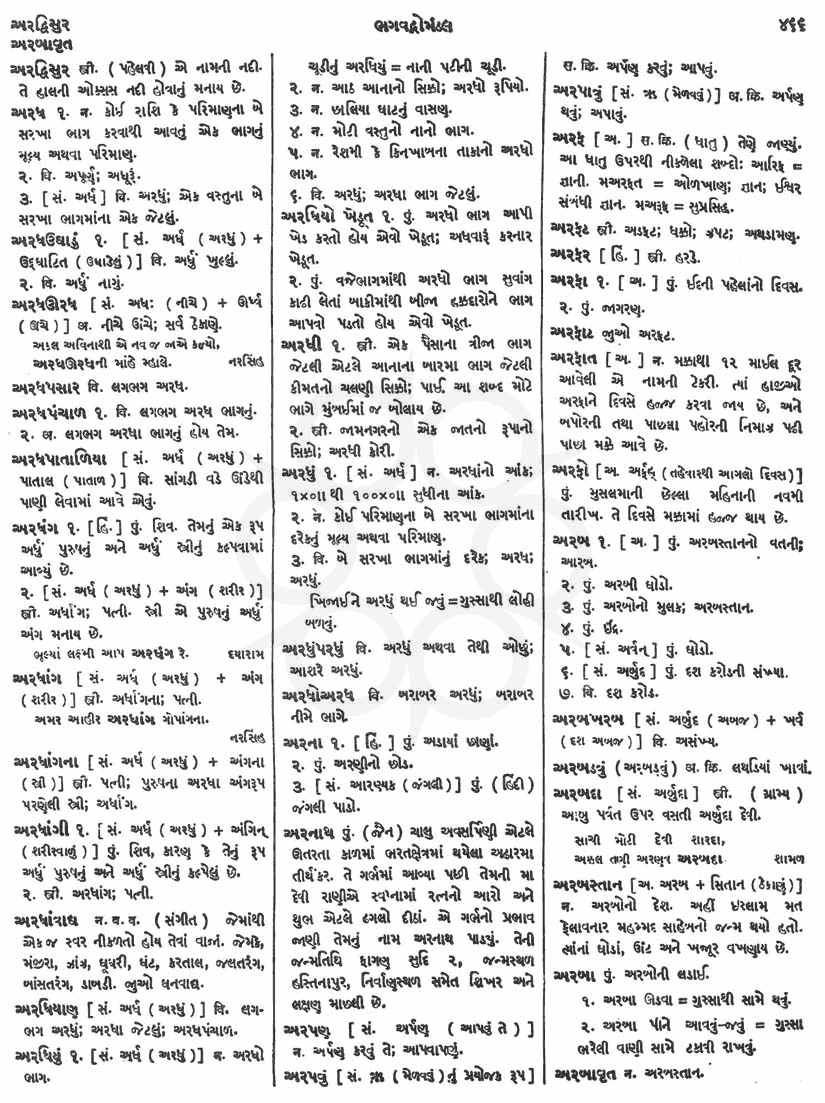 અરદ્વિસુર
અરબાવૃત
ભગવદ્ગોમંડલ
૪૬૬
અરદ્વિસુર સ્ત્રી. ( પહેલવી ) એ નામની નદી.
તે હાલની ઓક્સસ નદી હોવાનું મનાય છે.
અરધ ૧. ન. કોઈ રાશિ કે પરિમાણના બે
સરખા ભાગ કરવાથી આવતું એક ભાગનું
મૂલ્ય અથવા પરિમાણ.
૨. વિ. અપૂર્ણ; અધૂરૂં.
૩. [ સં. અર્ધ ] વિ. અરધું; એક વસ્તુના બે
સરખા ભાગમાંના એક જેટલું.
અરધઉઘાડું ૧. [ સં. અર્ધ ( અરધું ) +
ઉદ્ઘાટિત ( ઉઘાડેલું ) ] વિ. અર્ધું ખુલ્લું.
૨. વિ. અર્ધું નાગું.
અરધઊરધ [ સં. અધઃ ( નીચે ) + ઊર્ધ્વ
( ઊંચે ) ] અ. નીચે ઊંચે; સર્વ ઠેકાણે.
અકલ અવિનાશી એ નવ જ જાએ કલ્યો,
અરધઊરધની માંહે મ્હાલે. નરસિંહ
અરધપસાર વિ. લગભગ અરધ.
અરધપંચાળ ૧. વિ. લગભગ અરધ ભાગનું.
૨. અ. લગભગ અરધા ભાગનું હોય તેમ.
અરધપાતાળિયા [ સં. અર્ધ ( અરધું ) +
પાતાલ ( પાતાળ ) ] વિ. સાંગડી વડે ઊંડેથી
પાણી લેવામાં આવે એવું.
અરધંગ ૧. [ હિં. ] પું. શિવ. તેમનું એક રૂપ
અર્ધું પુરુષનું અને અર્ધું સ્ત્રીનું કલ્પવામાં
આવ્યું છે.
૨. [ સં. અર્ધ ( અરધું ) + અંગ ( શરીર ) ]
સ્ત્રી. અર્ધાંગ; પત્ની. સ્ત્રી એ પુરુષનું અર્ધું
અંગ મનાય છે.
ભૂલ્યાં લક્ષ્મી આપ અરધંગ રે. દયારામ
અરધાંગ [ સં. અર્ધ ( અરધું ) + અંગ
( શરીર ) ] સ્ત્રી. અર્ધાંગના; પત્ની.
અમર આહીર અરધાંગ ગોપાંગના.
નરસિંહ
અરધાંગના [ સં. અર્ધ ( અરધું ) + અંગના
( સ્ત્રી ) ] સ્ત્રી. પત્ની; પુરુષના અરધા અંગરૂપ
પરણેલી સ્ત્રી; અર્ધાંગ.
અરધાંગી ૧. [ સં. અર્ધ ( અરધું ) + અંગિન્
( શરીરવાળું ) ] પું. શિવ, કારણ કે તેનું રૂપ
અર્ધું પુરુષનું અને અર્ધું સ્ત્રીનું કલ્પેલું છે.
૨. સ્ત્રી. અરધાંગ; પત્ની.
અરધાંવાદ્ય ન. બ. વ. ( સંગીત ) જેમાંથી
એક જ સ્વર નીકળતો હોય તેવાં વાજાં. જેમકે,
મંજીરા, ઝાંઝ, ઘૂઘરી, ઘંટ, કરતાલ, જલતરંગ,
બાંસતરંગ, ડાબડી. જુઓ ઘનવાદ્ય.
અરધિયાણ [ સં. અર્ધ ( અરધું ) ] વિ. લગ-
ભગ અરધું; અરધા જેટલું; અરધપંચાળ.
અરધિયું ૧. [ સં. અર્ધ ( અરધું ) ] ન. અરધો
ભાગ.
ચૂડીનું અરધિયું = નાની પટીની ચૂડી.
૨. ન. આઠ આનાનો સિક્કો; અરધો રૂપિયો.
૩. ન. છાલિયા ઘાટનું વાસણ.
૪. ન. મોટી વસ્તુનો નાનો ભાગ.
૫. ન. રેશમી કે કિનખાબના તાકાનો અરધો
ભાગ.
૬. વિ. અરધું; અરધા ભાગ જેટલું.
અરધિયો ખેડૂત ૧. પું. અરધો ભાગ આપી
ખેડ કરતો હોય એવો ખેડૂત; અધવારૂં કરનાર
ખેડૂત.
૨. પું. વજેભાગમાંથી અરધો ભાગ સુવાંગ
કાઢી લેતાં બાકીમાંથી બીજા હકદારોને ભાગ
આપવો પડતો હોય એવો ખેડૂત.
અરધી ૧. સ્ત્રી. એક પૈસાના ત્રીજા ભાગ
જેટલી એટલે આનાના બારમા ભાગ જેટલી
કીમતનો ચલણી સિક્કો; પાઈ. આ શબ્દ મોટે
ભાગે મુંબઈમાં જ બોલાય છે.
૨. સ્ત્રી. જામનગરનો એક જાતનો રૂપાનો
સિક્કો; અરધી કોરી.
અરધું ૧. [ સં. અર્ધ ] ન. અરધાંનો આંક;
૧×૦॥ થી ૧૦૦×૦॥ સુધીના આંક.
૨. ન. કોઈ પરિમાણના બે સરખા ભાગમાંના
દરેકનું મૂલ્ય અથવા પરિમાણ.
૩. વિ. બે સરખા ભાગમાંનું દરેક; અરધ;
અરધું.
ખિજાઈને અરધું થઈ જવું = ગુસ્સાથી લોહી
બળવું.
અરધુંપરધું વિ. અરધું અથવા તેથી ઓછું;
આશરે અરધું.
અરધોઅરધ વિ. બરાબર અરધું; બરાબર
નીમે ભાગે.
અરના ૧. [ હિં. ] પું. અડાયાં છાણાં.
૨. પું. અરણીનો છોડ.
૩. [ સં. આરણ્યક ( જંગલી ) ] પું. ( હિંદી )
જંગલી પાડો.
અરનાથ પું. ( જૈન ) ચાલુ અવસર્પિણી એટલે
ઊતરતા કાળમાં ભરતક્ષેત્રમાં થયેલા અઢારમા
તીર્થંકર. તે ગર્ભમાં આવ્યા પછી તેમની મા
દેવી રાણીએ સ્વપ્નામાં રત્નનો આરો અને
થુભ એટલે ઢગલો દીઠાં. એ ગર્ભનો પ્રભાવ
જાણી તેમનું નામ અરનાથ પાડ્યું. તેની
જન્મતિથિ ફાગણ સુદિ ૨, જન્મસ્થળ
હસ્તિનાપુર, નિર્વાણસ્થળ સમેત શિખર અને
લક્ષણ માછલી છે.
અરપણ [ સં. અર્પણ ( આપવું તે ) ]
ન. અર્પણ કરવું તે; આપવાપણું.
અરપવું [ સં. ઋ ( મેળવવું ) નું પ્રયોજક રૂપ ]
સ. ક્રિ. અર્પણ કરવું; આપવું.
અરપાવું [ સં. ઋ ( મેળવવું ) ] અ. ક્રિ. અર્પણ
થવું; અપાવું.
અરફ [ અ. ] સ. ક્રિ. ( ધાતુ ) તેણે જાણ્યું.
આ ધાતુ ઉપરથી નીકળેલા શબ્દોઃ આરિફ =
જ્ઞાની. મઅરફત = ઓળખાણ; જ્ઞાન; ઈશ્વર
સંબંધી જ્ઞાન. મઅરૂફ = સુપ્રસિદ્ધ.
અરફટ સ્ત્રી. અડફટ; ધક્કો; ઝપટ; અથડામણ.
અરફર [ હિં. ] સ્ત્રી. હરડે.
અરફા ૧. [ અ. ] પું. ઈદની પહેલાંનો દિવસ.
૨. પું. જાગરણ.
અરફાટ જુઓ અરફટ.
અરફાત [ અ. ] ન. મક્કાથી ૧૨ માઈલ દૂર
આવેલી એ નામની ટેકરી. ત્યાં હાજીઓ
અરફાને દિવસે હજ્જ કરવા જાય છે, અને
બપોરની તથા પાછલા પહોરની નિમાઝ પઢી
પાછા મક્કે આવે છે.
અરફો [ અ. અર્ફહ્ ( તહેવારથી આગલો દિવસ ) ]
પું. મુસલમાની છેલ્લા મહિનાની નવમી
તારીખ. તે દિવસે મક્કામાં હજ્જ થાય છે.
અરબ ૧. [ અ. ] પું. અરબસ્તાનનો વતની;
આરબ.
૨. પું. અરબી ઘોડો.
૩. પું. અરબોનો મુલક; અરબસ્તાન.
૪. પું. ઇંદ્ર.
૫. [ સં. અર્વન્ ] પું. ઘોડો.
૬. [ સં. અર્બુદ ] પું. દશ કરોડની સંખ્યા.
૭. વિ. દશ કરોડ.
અરબખરબ [ સં. અર્બુદ ( અબજ ) + ખર્વ
( દશ અબજ ) ] વિ. અસંખ્ય.
અરબડવું ( અરબડવું ) અ. ક્રિ. લથડિયાં ખાવાં.
અરબદા [ સં. અર્બુદા ] સ્ત્રી. ( ગ્રામ્ય )
આબુ પર્વત ઉપર વસતી અર્બુદા દેવી.
સાચી મોટી દેવી શારદા,
અકલ તાણી અરણવ અરબદા શામળ
અરબસ્તાન [ અ. અરબ + સિતાન ( ઠેકાણું ) ]
ન. અરબોનો દેશ. અહીં ઇસ્લામ મત
ફેલાવનાર મહમ્મદ સાહેબનો જન્મ થયો હતો.
ત્યાંનાં ઘોડાં, ઊંટ અને ખજૂર વખણાય છે.
અરબા પું. અરબોની લડાઈ.
૧. અરબા ઊડવા = ગુસ્સાથી સામે થવું.
૨. અરબા પીને આવવું-જવું = ગુસ્સા
ભરેલી વાણી સામે ટકાવી રાખવું.
અરબાવૃત ન. અરબસ્તાન.